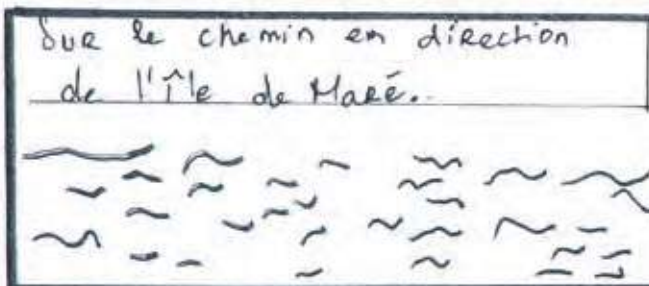 Sur le chemin en direction
de l'île de Maré.